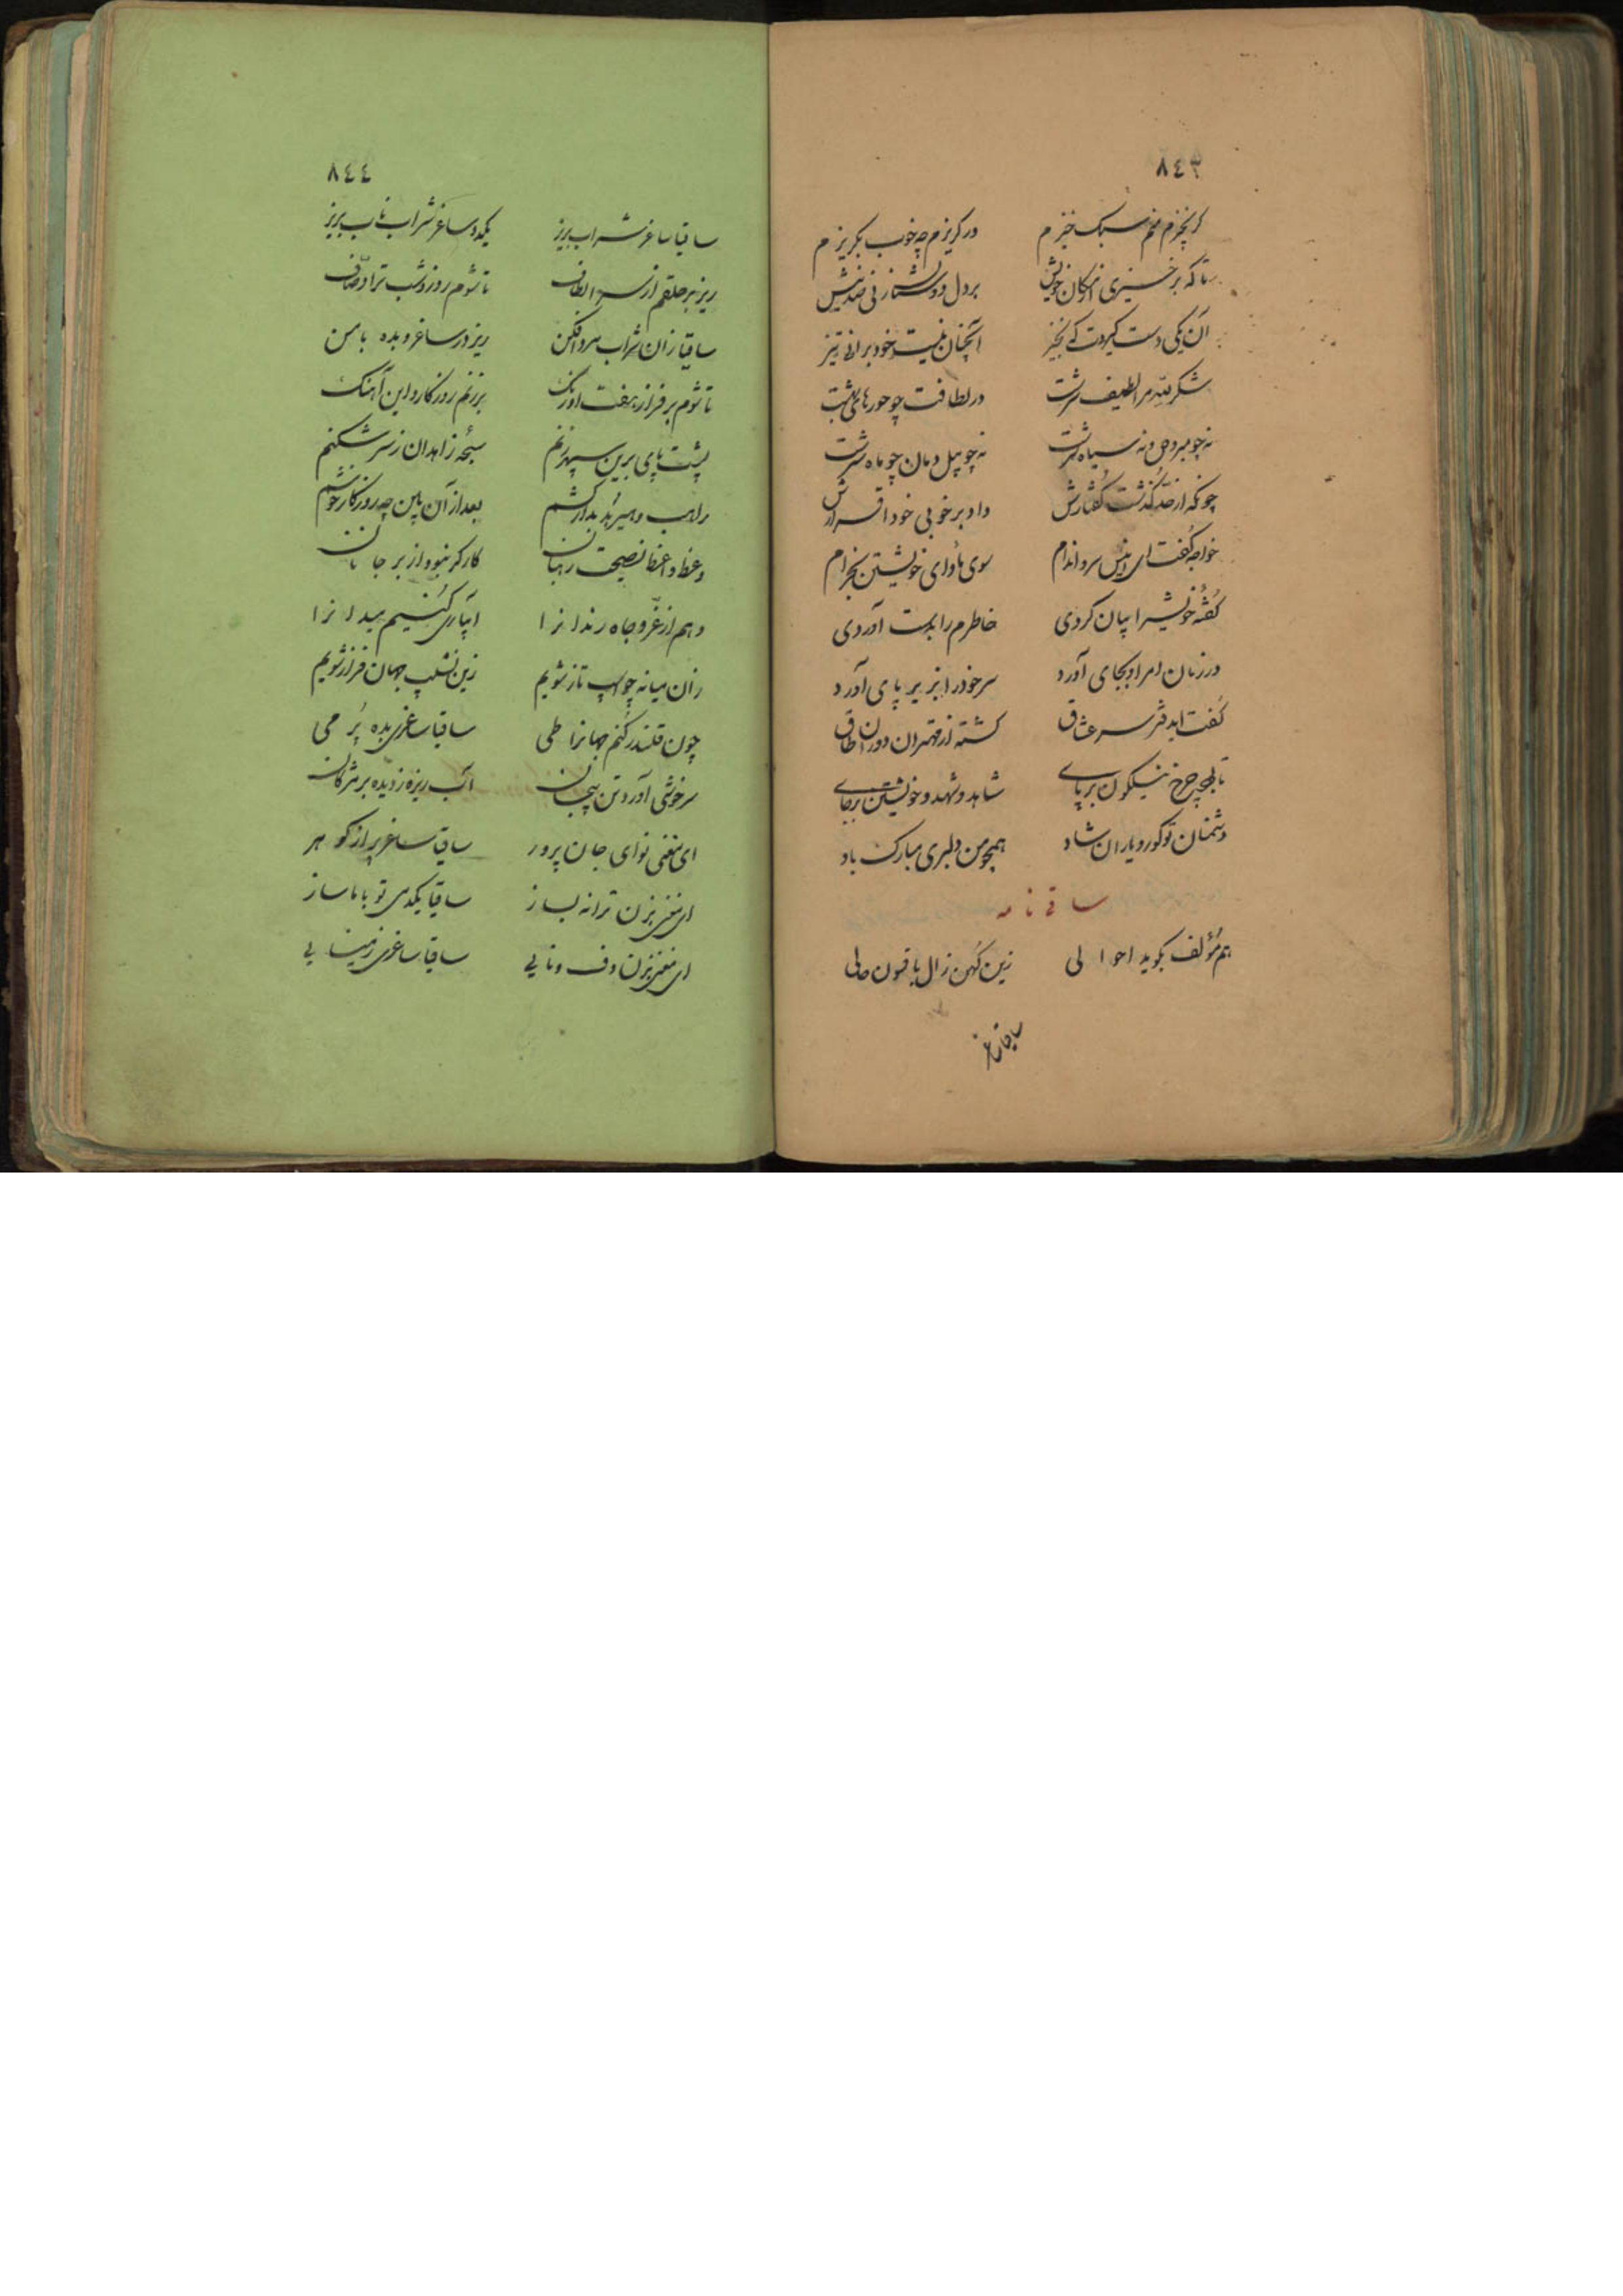 ٨٤٣
گر بخیزم منم سبک خیزم در گریزم چه خوب بگریزم
تا که برخیزی از مکان خویش بر دل دوستان زنی صد نیش
آن یکی دست گیردت که بخیز آنچنان نیست خود برانی تیز
شکر لله مر الطیف سرشت در لطافت چو حورهای بهشت
نه چو مبروص و نه سیاه سرشت نه چو پیل دمان چو ماه سرشت
چونکه از حد گذشت گفتارش داد بر خوبی خود اقرارش
خواجه گفت ای انیس سرو اندام سوی ماوای خویشتن بخرام
گفته خویش را بیان کردی خاطرم را بدست آوردی
در زمان امر او بجای آورد سر خود را بزیر پای آورد
گفت ای دفتر سر عشاق گشته از قهرمان دوران طاق
تا بود چرخ نیلگون بر پای شاهد و شهد و خویشتن بر جای
دشمنان تو کور و یاران شاد همچو من دلبری مبارک باد
ساقی نامه
هم مؤلف بگوید احوالی زین کهن زال با فسون حالی
ساقیا ساغر
٨٤٤
ساقیا ساغر شراب بریز یکدو ساغر شراب ناب بریز
ریز بر حلقم از سر الطاف تا شوم روز و شب ترا وصاف
ساقیا زان شراب مرد افکن ریز در ساغر و بده با من
تا شوم بر فراز هفت اورنگ بر زنم روزگار و این آهنگ
پشت پای برین سپهر زنم سبحه زاهدان ز سر شکنم
راهب و هیربد بدار کشم بعد از آن باین چه روزگار خوشم
وعظ واعظ نصیحت رهبان کارگر نبود از بر جانان
وهم از عز و جاه رندانرا آبیاری کنیم میدانرا
زان میانه چو اسب تاز شویم زین نشیب جهان فراز شویم
چون قلندر کنم جهانرا طی ساقیا ساغری بده پر می
سرخوشی آورد تن پیچان آب ریزه ز دیده بر مژگان
ای مغنی نوای جان پرور ساقیا ساغر پر از گوهر
ای مغنی بزن ترانه بساز ساقیا یکدمی تو با ما ساز
ای مغنی بزن دف و نایی ساقیا ساغری ز مینایی